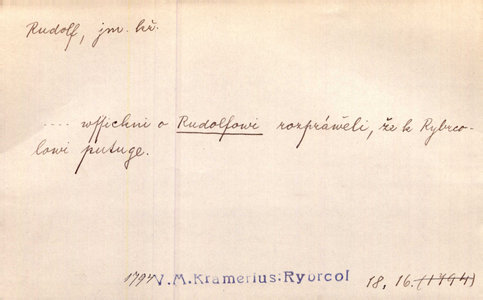 Rudolf, jm. kř.
.... wssichni o Rudolfowi rozpráwěli, že k Rybrco-
lowi putuge.
1794 V. M. Kramerius: Rybrcol 18, 16. (1794)